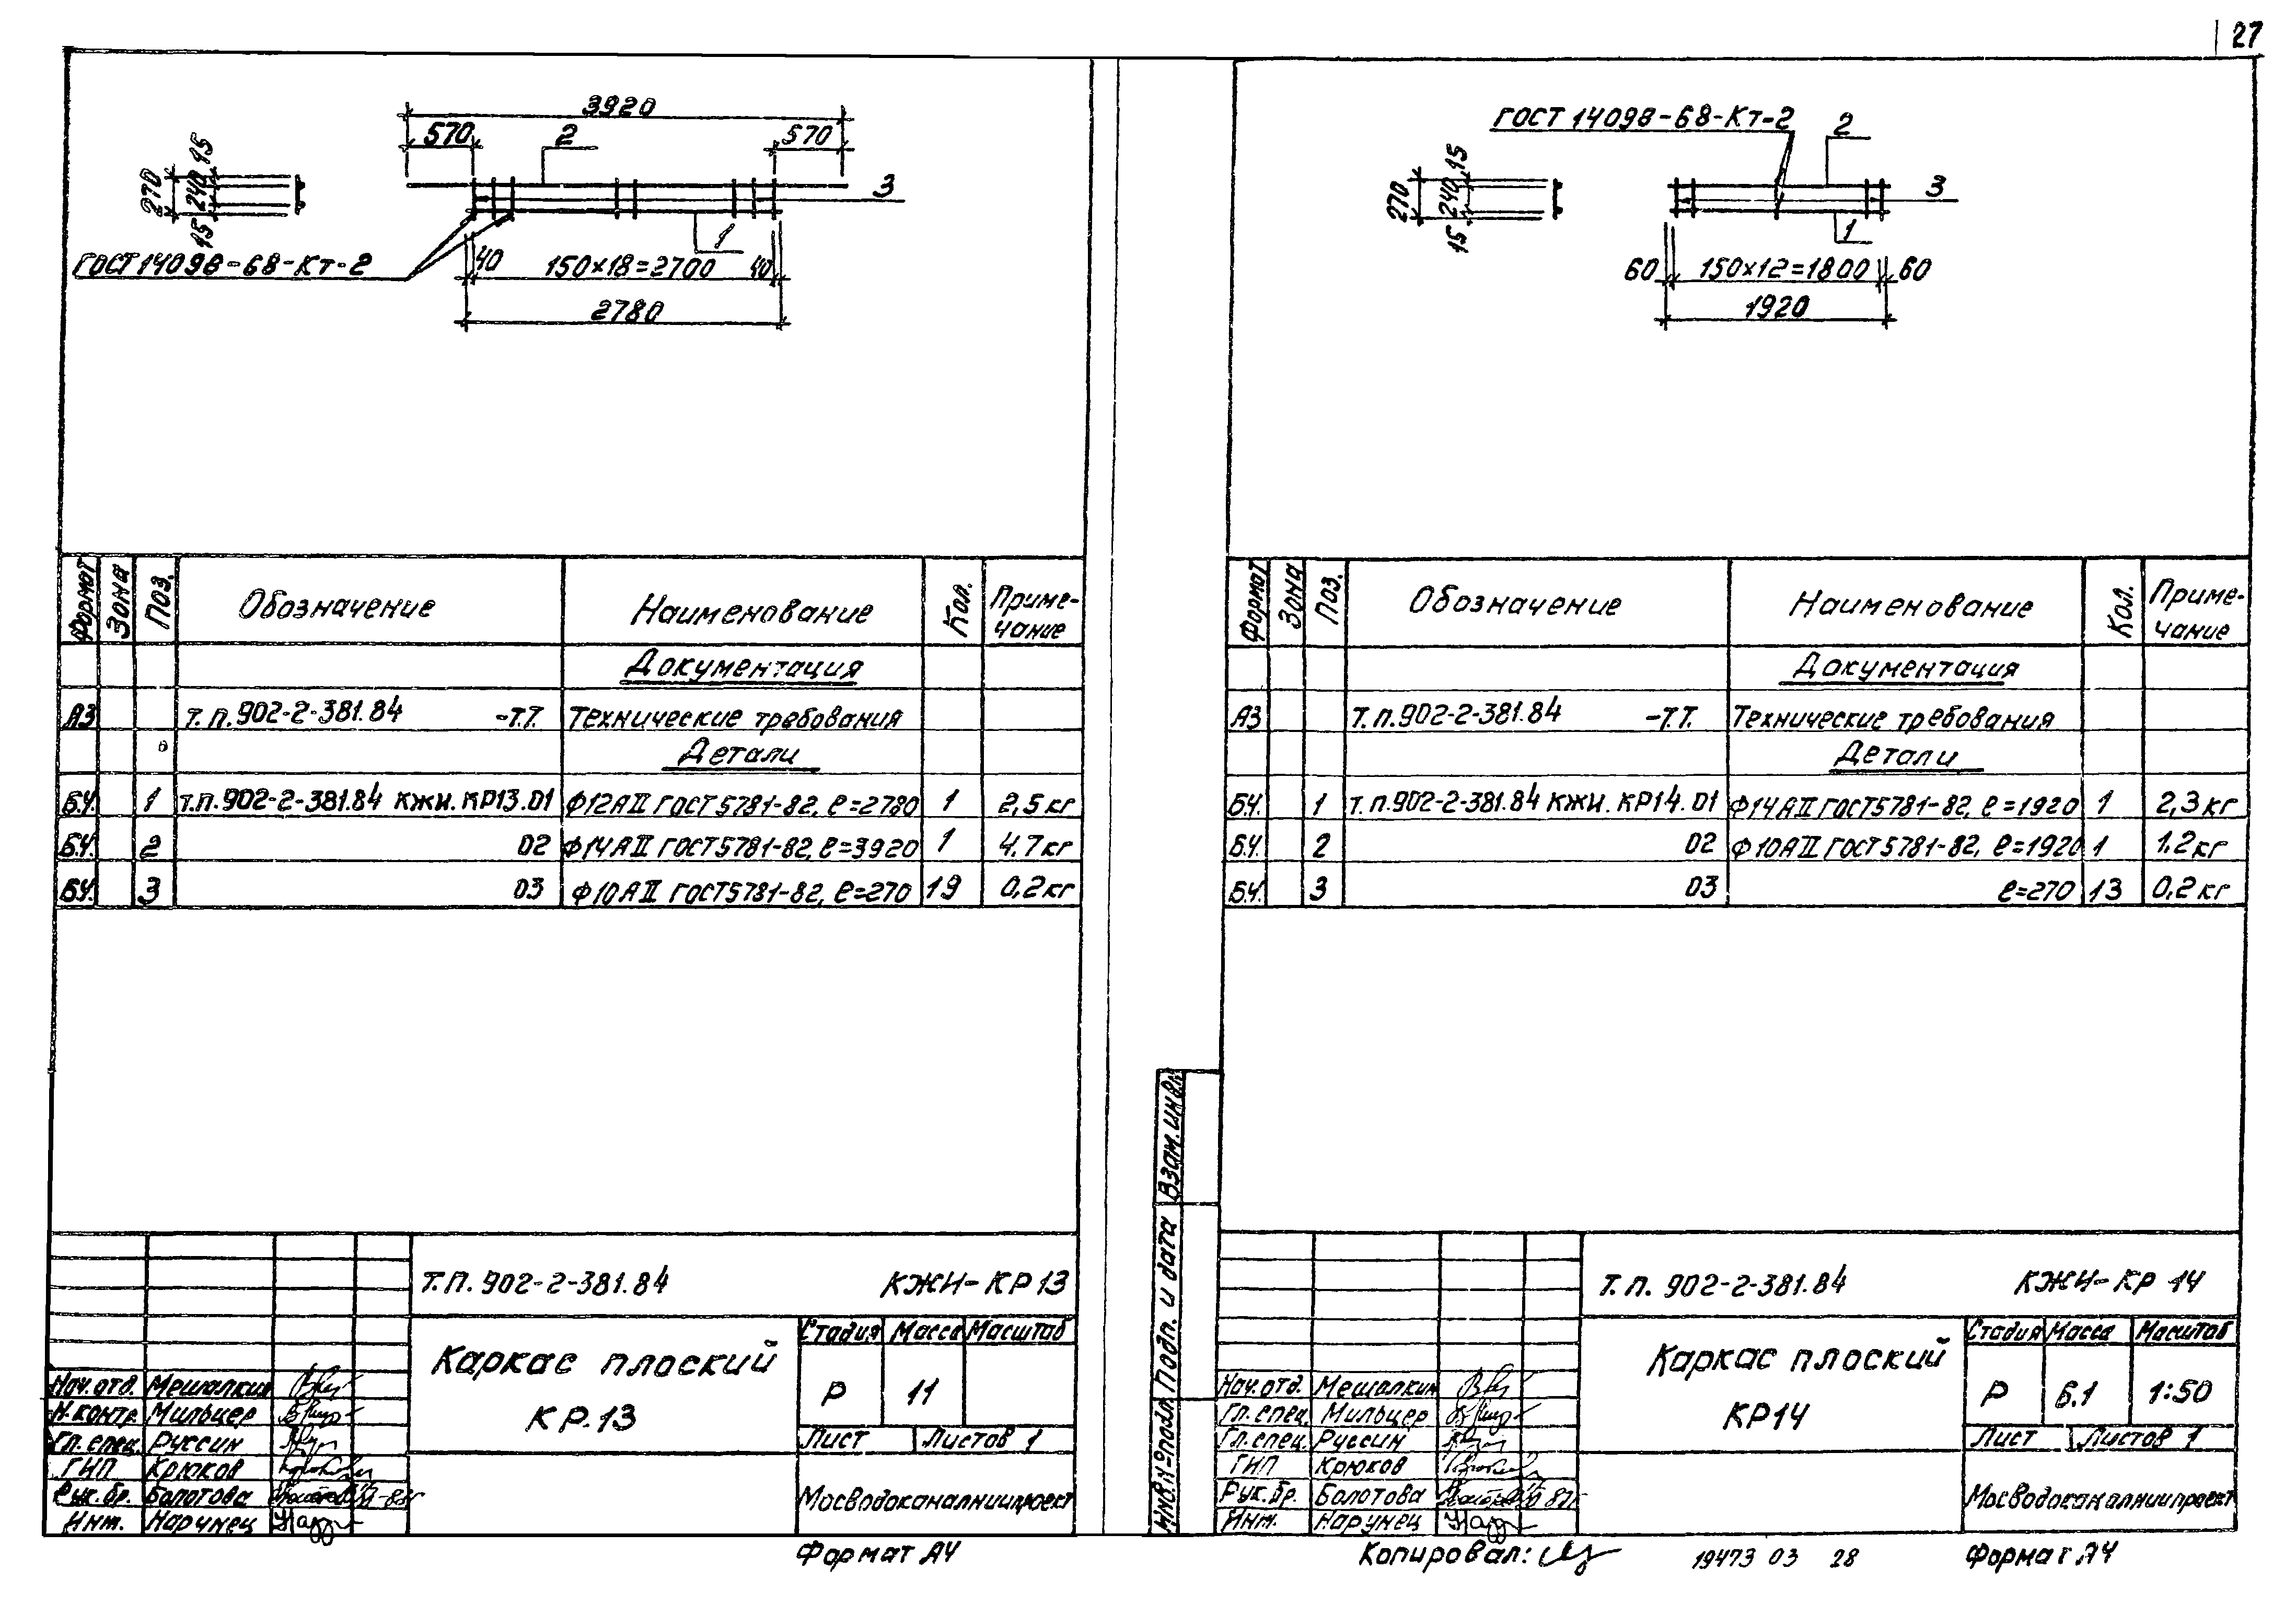 27
3920
570
2
570
3
270
15
240
15
1
ГОСТ 14098-68-Кт-2
40
150×18=2700
40
2780
Формат
Зона
Поз.
Обозначение
Наименование
Кол.
Приме-
чание
Документация
А3
Т.П.902-2-381.84
-Т.Т.
Технические требования
Детали
Б.Ч.
1
Т.П.902-2-381.84 КЖИ. КР13.01
Ф12АII ГОСТ5781-82, ℓ=2780
1
2,5кг
Б.Ч.
2
02
Ф14АII ГОСТ5781-82, ℓ=3920
1
4.7кг
Б.Ч.
3
03
Ф10АII ГОСТ5781-82, ℓ=270
19
0,2кг
Т.П. 902-2-381.84
КЖИ-КР13
Каркас плоский
КР.13
Стадия
Масса
Масштаб
Р
11
Лист
Листов 1
Мосводоканалниипроект
Нач.отд.
Мешалкин
Н.контр.
Мильцер
Гл.спец.
Руссин
ГИП
Крюков
Рук.бр.
Болотова
Инж.
Нарунец
Формат А4
ГОСТ 14098-68-Кт-2
2
3
270
15
240
15
1
60
150×12=1800
60
1920
Формат
Зона
Поз.
Обозначение
Наименование
Кол.
Приме-
чание
Документация
А3
Т.П.902-2-381.84
-Т.Т.
Технические требования
Детали
Б.Ч.
1
Т.П.902-2-381.84 КЖИ. КР14.01
Ф14АII ГОСТ5781-82, ℓ=1920
1
2,3кг
Б.Ч.
2
02
Ф10АII ГОСТ5781-82, ℓ=1920
1
1.2кг
Б.Ч.
3
03
ℓ=270
13
0,2кг
Взам.инв.№
Подп. и дата
Инв.№подл.
Т.П. 902-2-381.84
КЖИ-КР 14
Каркас плоский
КР14
Стадия
Масса
Масштаб
Р
6.1
1:50
Лист
Листов 1
Мосводоканалниипроект
Нач.отд.
Мешалкин
Гл.спец.
Мильцер
Гл.спец.
Руссин
ГИП
Крюков
Рук.бр.
Болотова
Инж.
Нарунец
Копировал:
19473 03 28
Формат А4